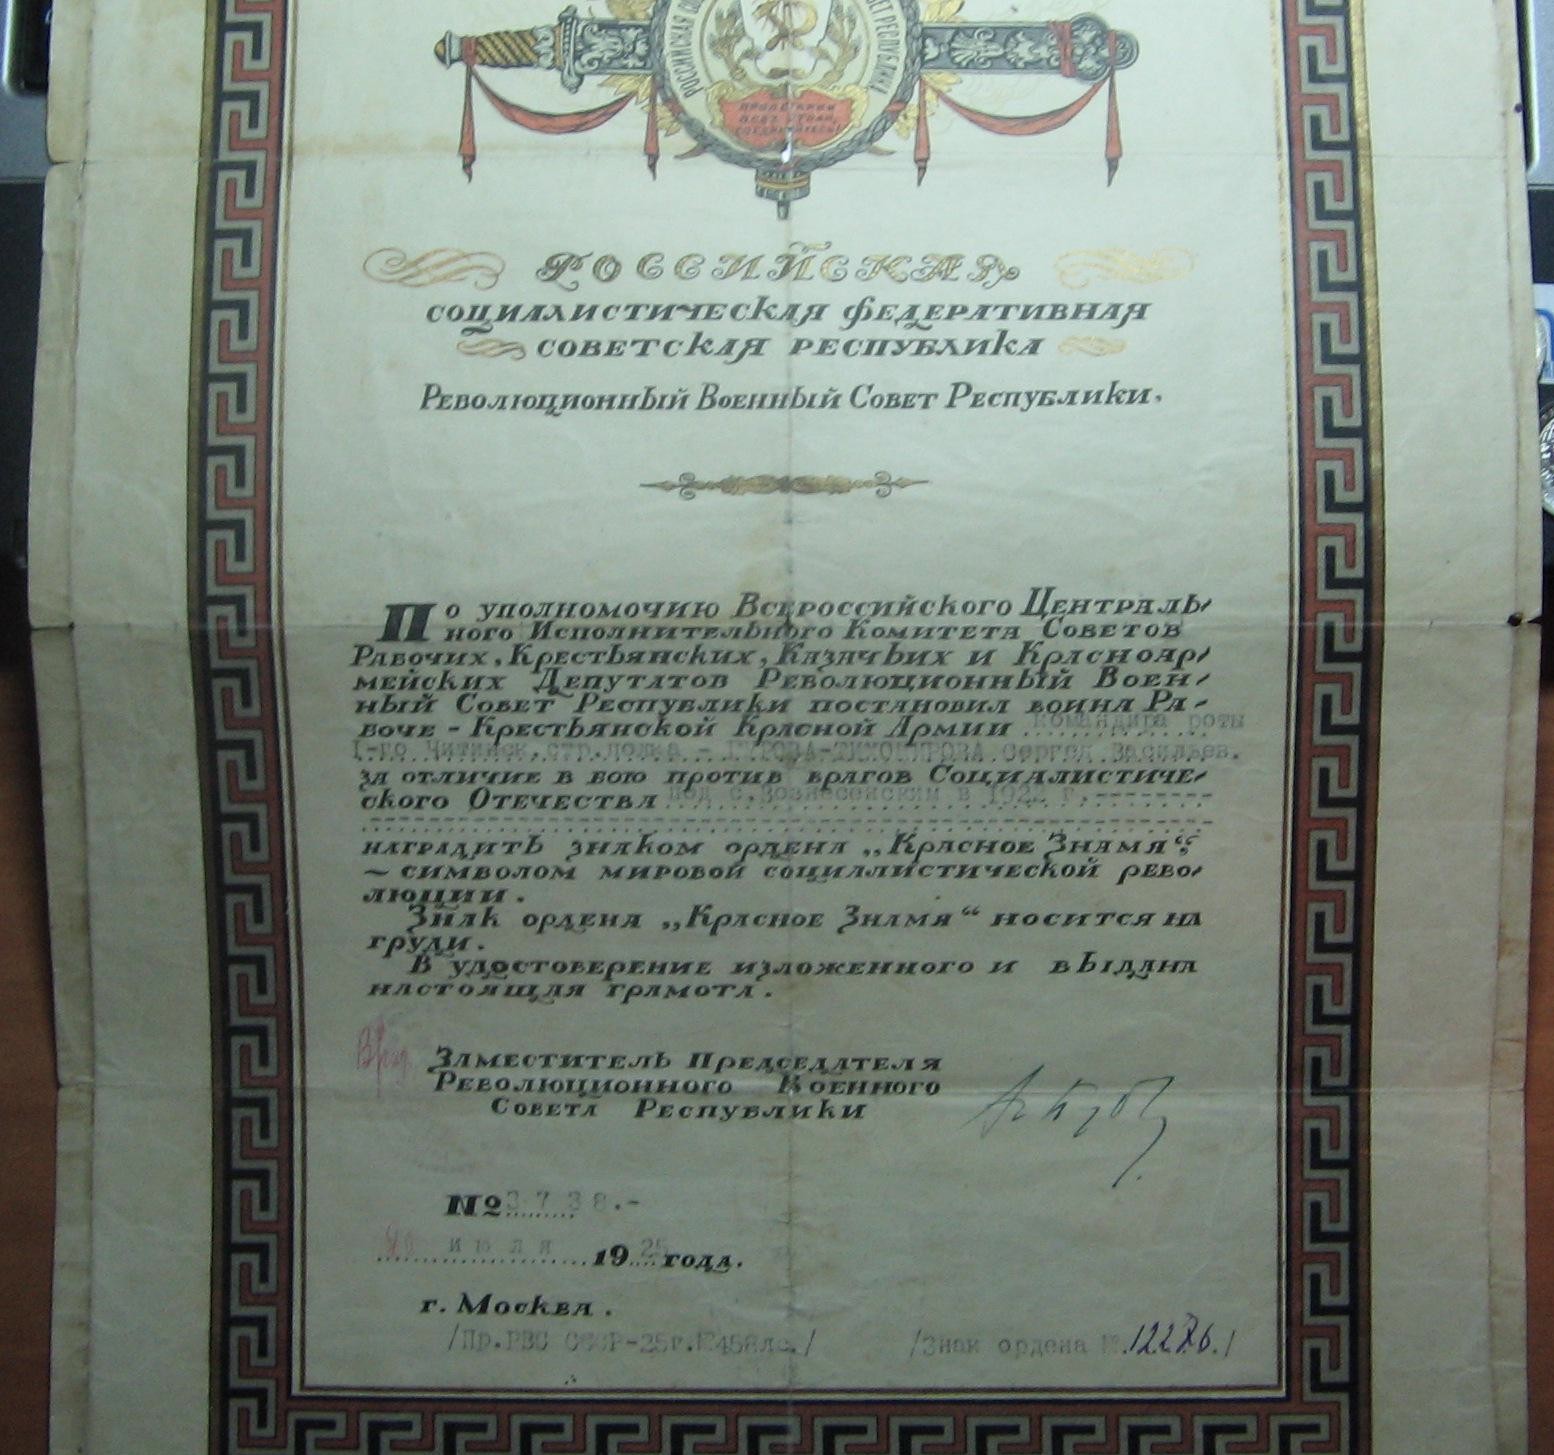 РОССИЙСКАЯ
СОВЕТ РЕСПУБЛИКА
ПРОЛЕТАРИИ
ВСЕХ СТРАН,
СОЕДИНЯЙТЕСЬ!
РОССИЙСКАЯ
СОЦИАЛИСТИЧЕСКАЯ ФЕДЕРАТИВНАЯ
СОВЕТСКАЯ РЕСПУБЛИКА
Революционный Военный Совет Республики.
По уполномочию Всероссийского Централь-
ного Исполнительного Комитета Советов
Рабочих, Крестьянских, Казачьих и Красноар-
мейских Депутатов Революционный Воен-
ный Совет Республики постановил воина Ра-
боче-Крестьянской Красной Армии командира роты
1-го Читинск.стр.полка - ТИХОНРАВОВА Сергея Васильев.
за отличие в бою против врагов Социалистиче-
ского Отечества под с.Вознесенским в 1922 г.
наградить знаком ордена „Красное Знамя“,
- символом мировой социалистической рево-
люции.
Знак ордена „Красное Знамя“ носится на
груди.
В удостоверение изложенного и выдана
настоящая грамота.
Врид.
Заместитель Председателя
Революционного Военного
Совета Республики
№ 3738.-
июля 1925 года.
г. Москва.
/Пр.РВС СССР-25г.№458лс./ /Знак ордена №.12276./